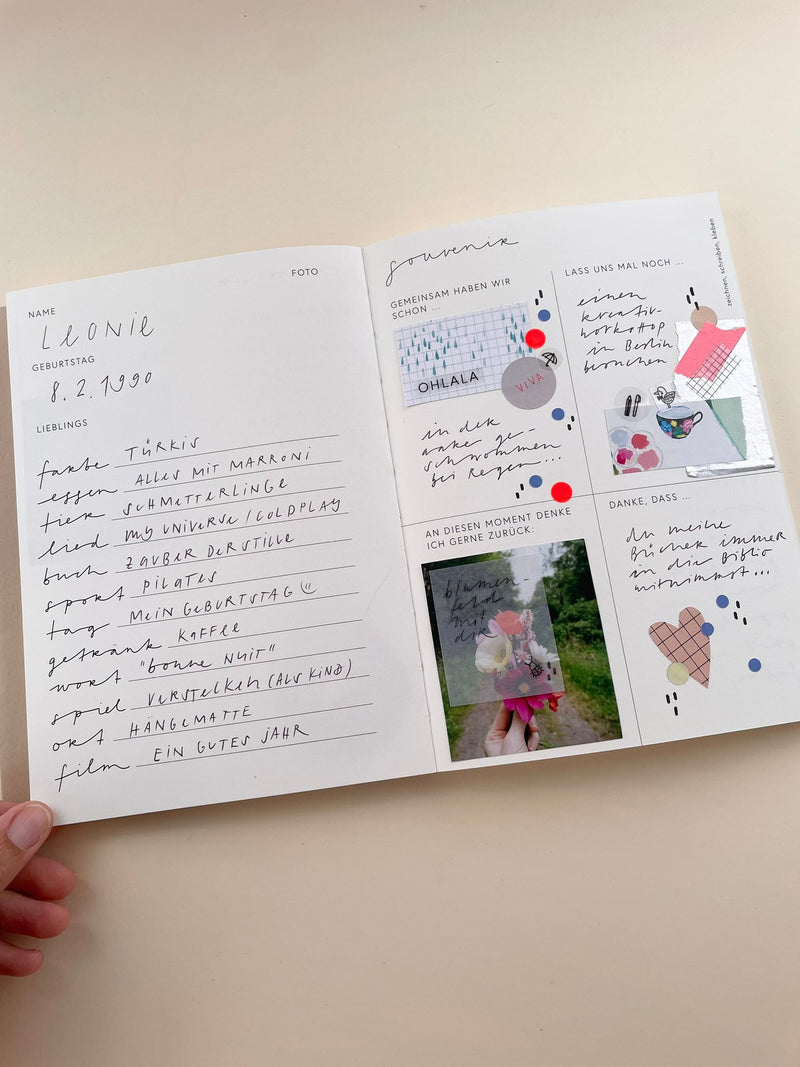 FOTO
NAME
LEONIE
GEBURTSTAG
8. 2. 1990
LIEBLINGS
farbe TÜRKIS
essen ALLES MIT MARRONI
tier SCHMETTERLINGE
lied MY UNIVERSE / COLDPLAY
buch ZAUBER DER STILLE
sport PILATES
tag MEIN GEBURTSTAG
getränk KAFFEE
wort "BONNE NUIT"
spiel VERSTECKEN (ALS KIND)
ort HÄNGEMATTE
film EIN GUTES JAHR
souvenir
GEMEINSAM HABEN WIR
SCHON ...
OHLALA
VIVA
in der
aare ge-
schwommen
bei Regen...
LASS UNS MAL NOCH ...
einen
kreativ-
workshop
in Berlin
besuchen
zeichnen, schreiben, kleben
AN DIESEN MOMENT DENKE
ICH GERNE ZURÜCK:
blumen-
feld
mit
dir
DANKE, DASS ...
du meine
Bücher immer
in die Biblio
mitnimmst...